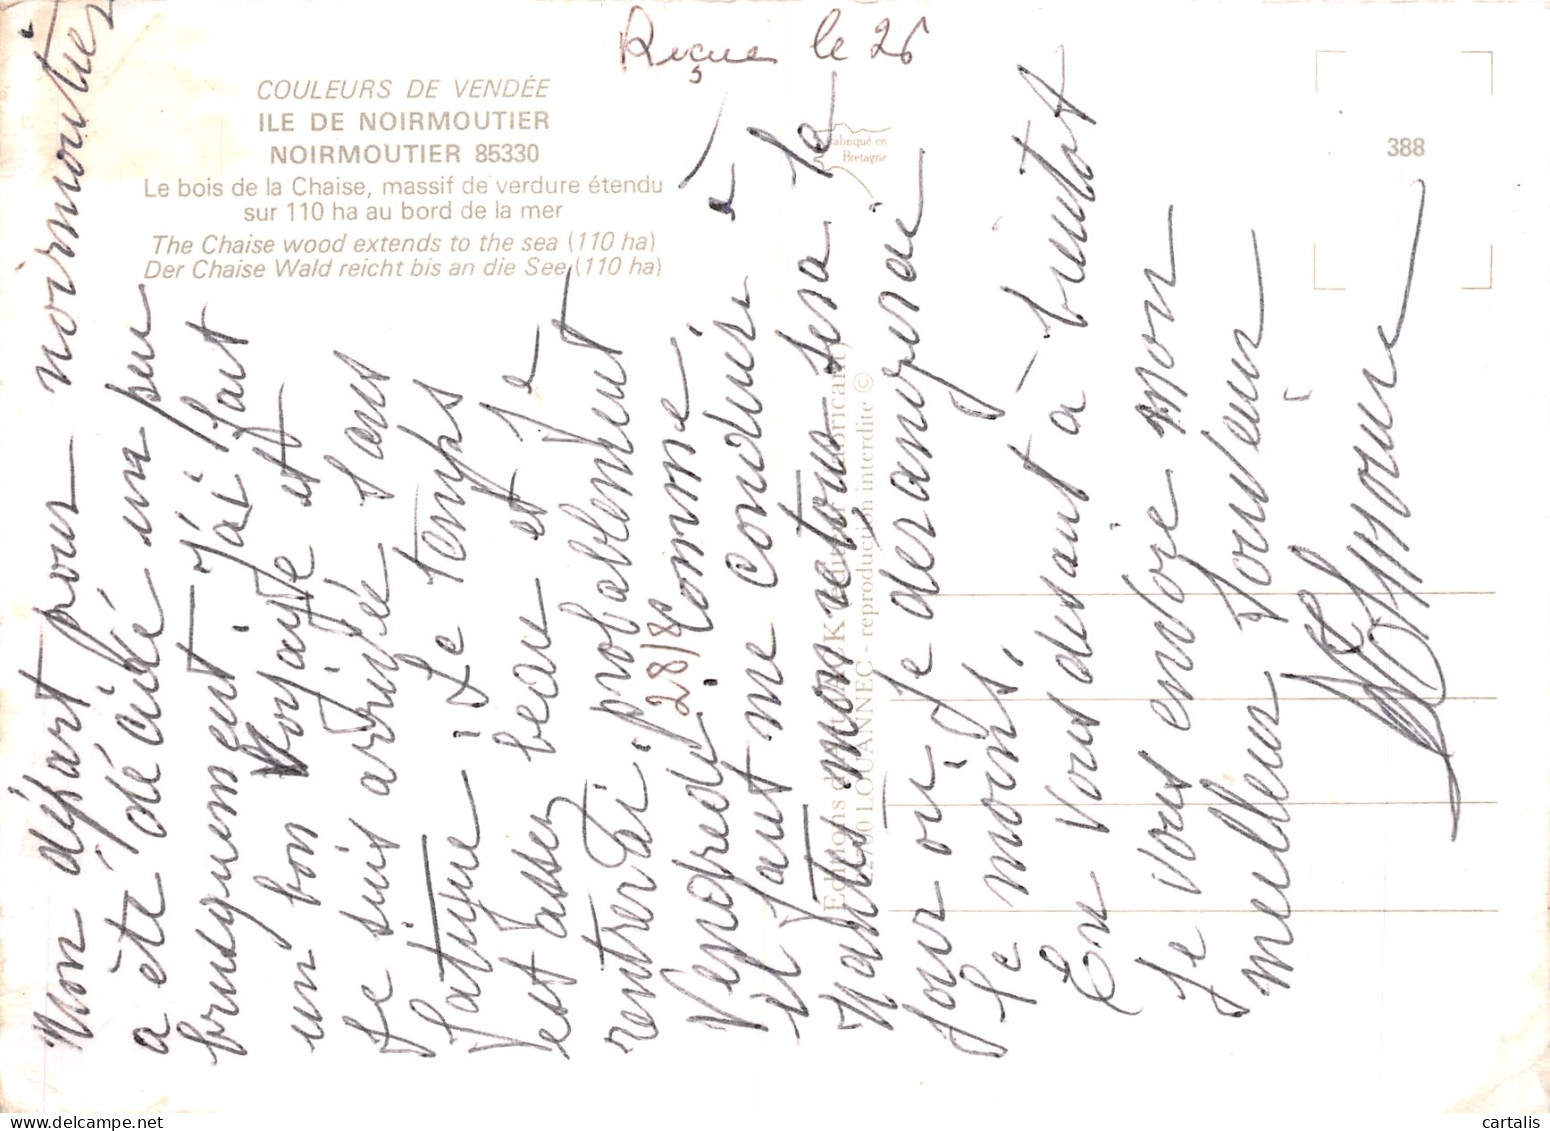 Reçue le 26
COULEURS DE VENDÉE
ILE DE NOIRMOUTIER
NOIRMOUTIER 85330
Le bois de la Chaise, massif de verdure étendu
sur 110 ha au bord de la mer
The Chaise wood extends to the sea (110 ha)
Der Chaise Wald reicht bis an die See (110 ha)
Fabriqué en
Bretagne
388
Editions d'Art JACK
22700 LOUANNEC - reproduction interdite ©
Mon départ pour noirmoutier
a été décidé un peu
brusquement. J'ai fait
un bon voyage et
Je suis arrivée sans
fatigue. Le temps
est assez beau et je
rentrerai probablement
Vendredi 28/8 Comme
il faut me conduire à
Nantes mon retour sera le
jour où je dérangerai
le moins.
En vous disant à bientot
Je vous envoie mon
meilleur souvenir